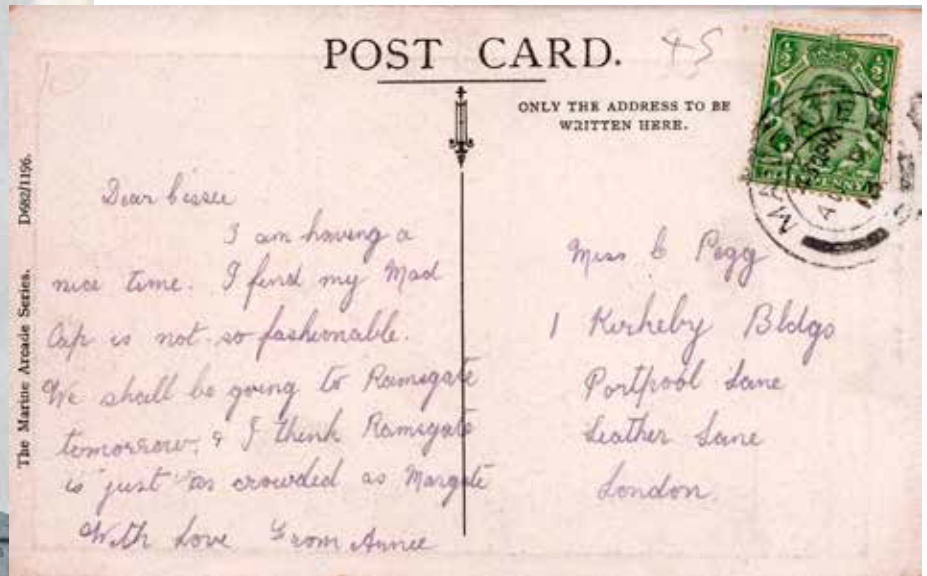 POST CARD.
45
ONLY THE ADDRESS TO BE
WRITTEN HERE.
MARGATE
The Marine Arcade Series. D682/1196.
Dear Cissee
I am having a
nice time. I find my Mad
Cap is not so fashionable.
We shall be going to Ramsgate
tomorrow, & I think Ramsgate
is just as crowded as Margate
With Love From Annie
Miss C Pegg
1 Kirkeby Bldgs
Portpool Lane
Leather Lane
London.